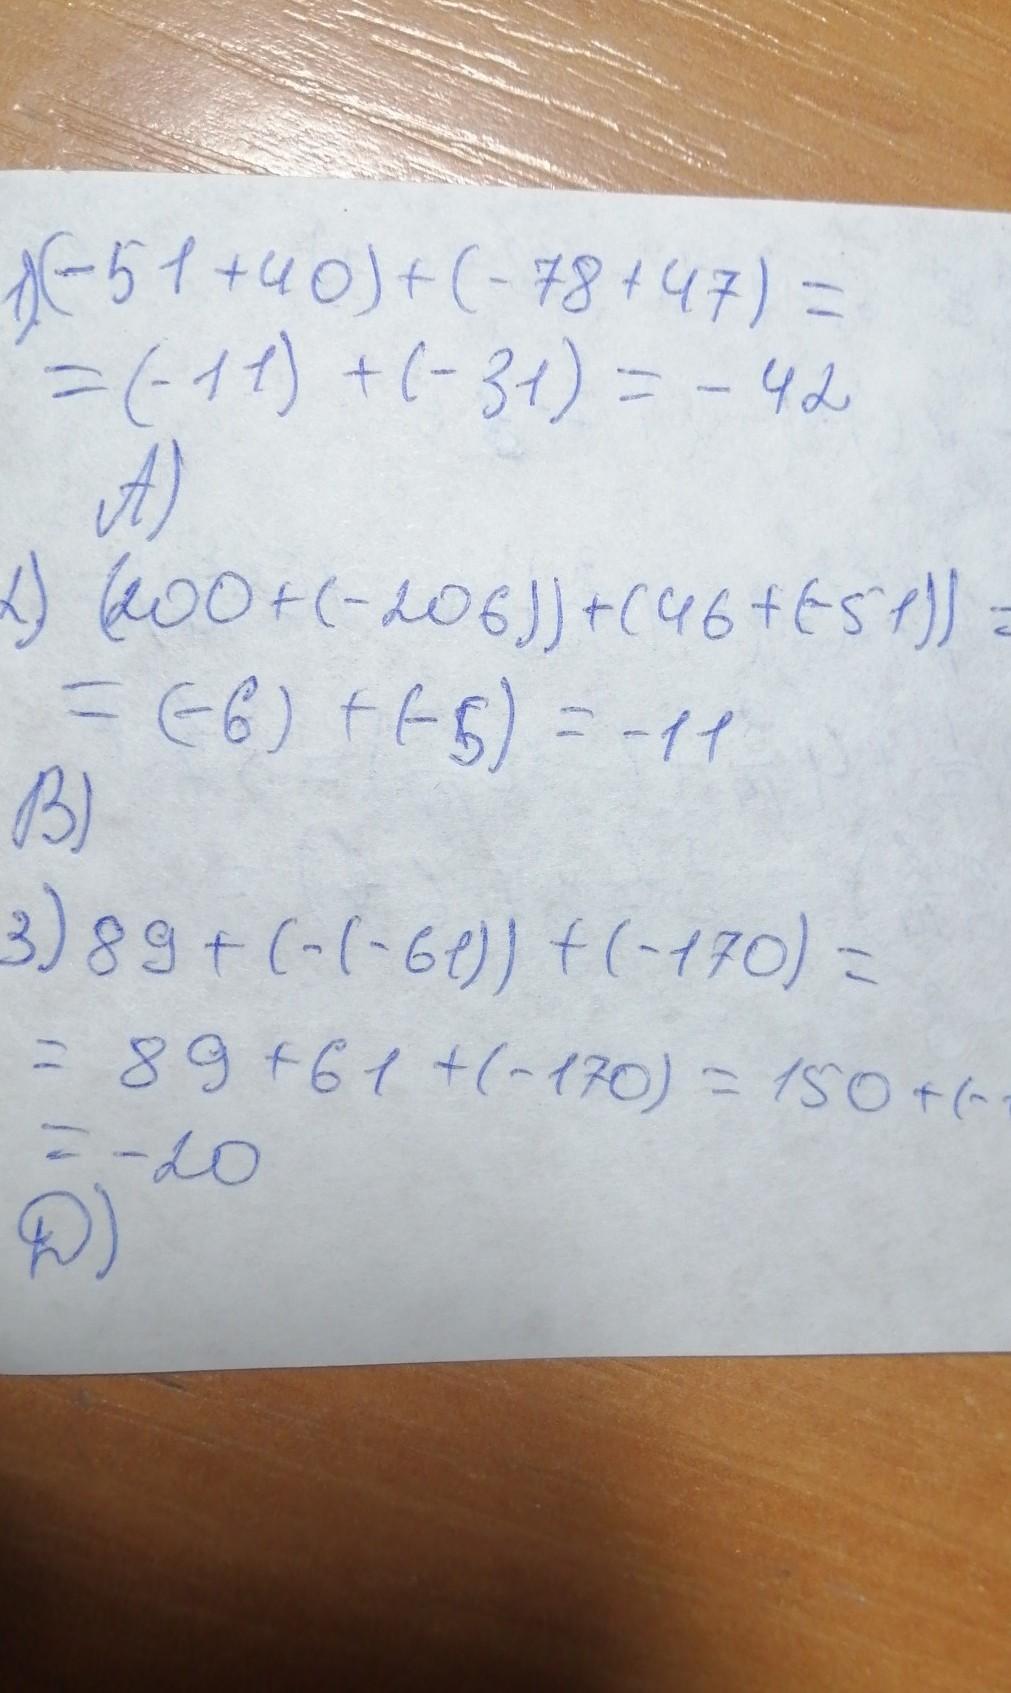 1) (-51+40)+(-78+47)=
=(-11)+(-31)=-42
A)
2) (200+(-206))+(46+(-51))=
=(-6)+(-5)=-11
B)
3) 89+(-(-61))+(-170)=
=89+61+(-170)=150+(-1
=-20
D)